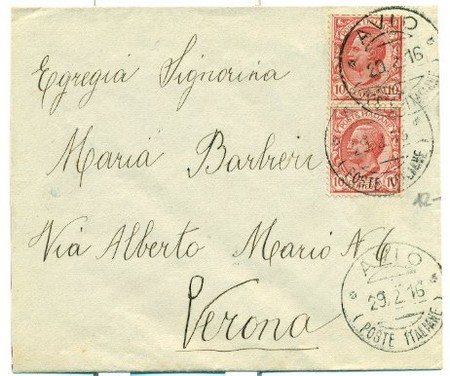 AVIO
29.2.16
POSTE ITALIANE
10 10
POSTE ITALIANE
10 10
Egregia Signorina
Maria Barbieri
Via Alberto Mario N 6
Verona
12-
AVIO
29.2.16
(POSTE ITALIANE)